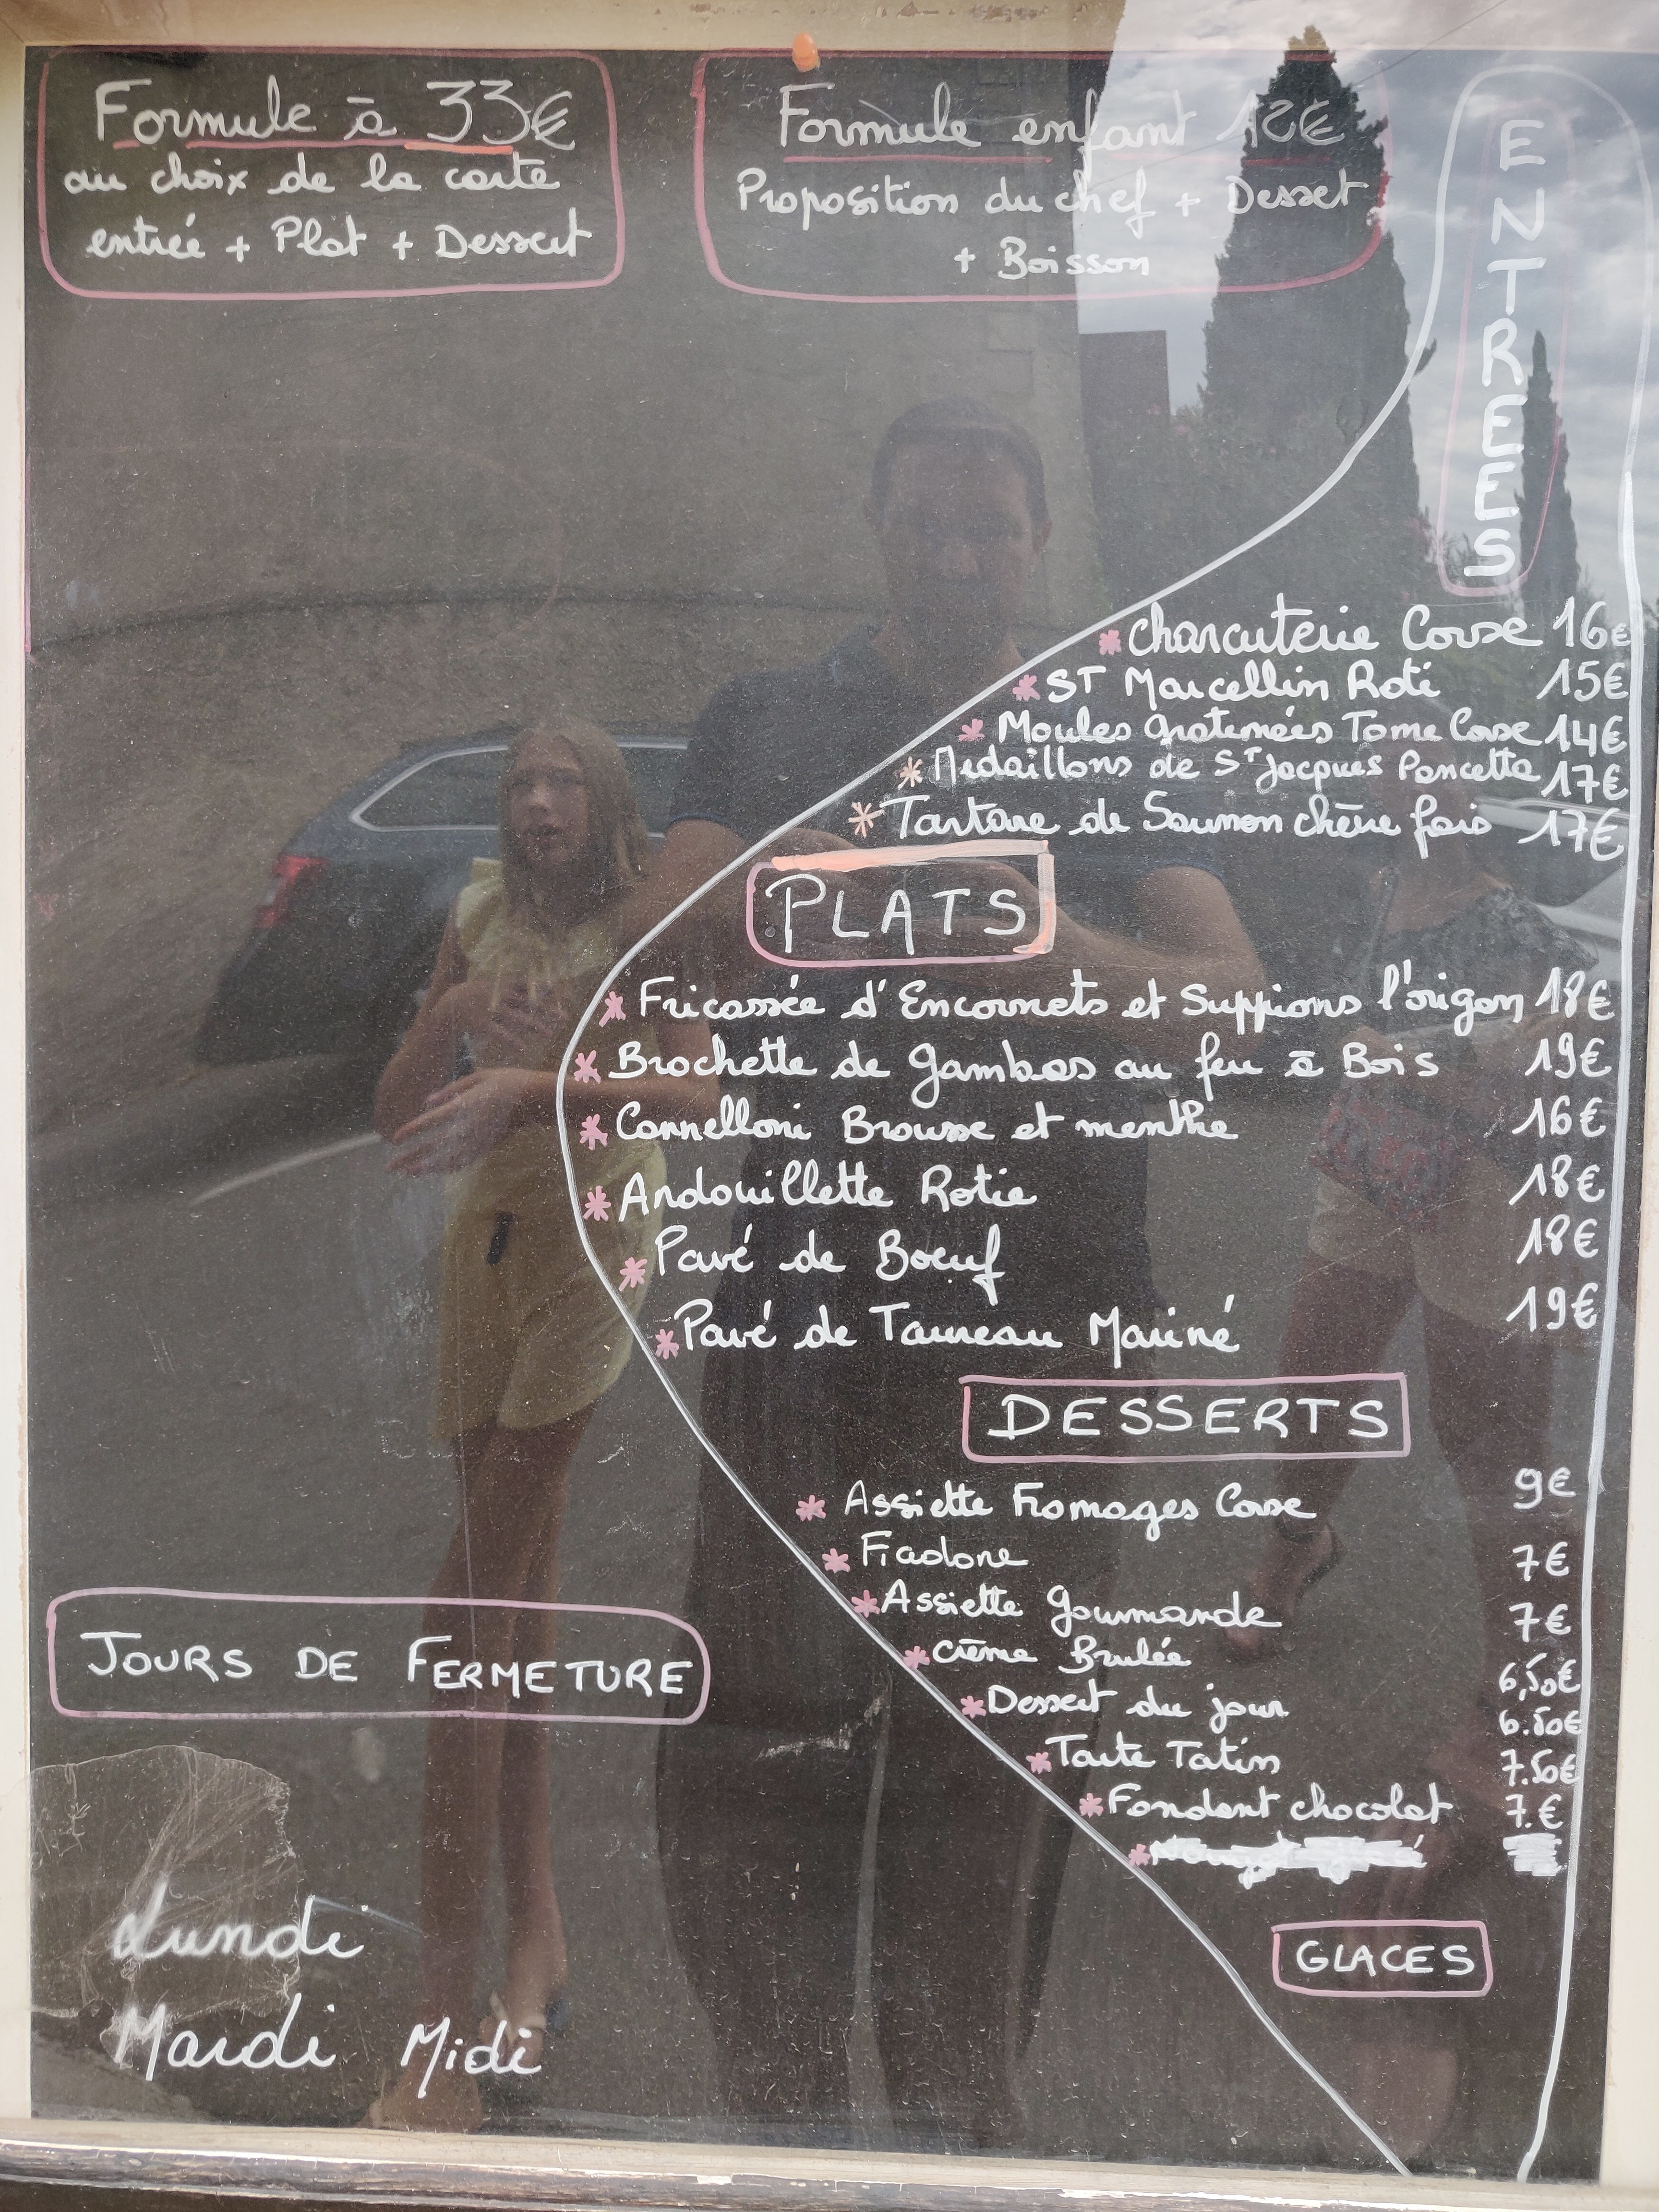 Formule à 33€
au choix de la carte
entrée + Plat + Dessert
Formule enfant 12€
Proposition du chef + Dessert
+ Boisson
ENTREES
* Charcuterie Corse 16€
* ST Marcellin Roti 15€
* Moules gratinées Tome Corse 14€
* Médaillons de ST Jacques Pancetta 17€
* Tartare de Saumon chèvre frais 17€
PLATS
* Fricassée d'Encornets et Suppions l'origan 18€
* Brochette de gambas au feu à Bois 19€
* Cannelloni Brousse et menthe 16€
* Andouillette Rotie 18€
* Pavé de Boeuf 18€
* Pavé de Taureau Mariné 19€
DESSERTS
* Assiette Fromages Corse 9€
* Fiadone 7€
* Assiette gourmande 7€
* Crème Brulée 6,50€
* Dessert du jour 6.50€
* Tarte Tatin 7.50€
* Fondant chocolat 7.€
GLACES
JOURS DE FERMETURE
Lundi
Mardi Midi